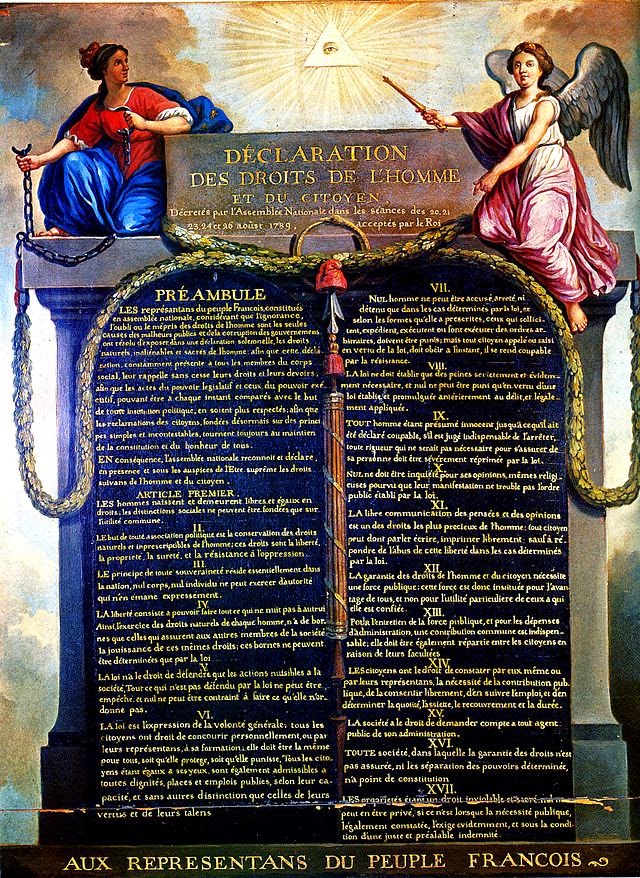 DÉCLARATION
DES DROITS DE L'HOMME
ET DU CITOYEN
Décretés par l'Assemblée Nationale dans les séances des 20, 21
23, 24 et 26 août 1789, acceptés par le Roi
PRÉAMBULE
LES représentans du peuple Francois, constitués
en assemblée nationale, considérant que l'ignorance,
l'oubli ou le mépris des droits de l'homme sont les seules
causes des malheurs publics et de la corruption des gouvernemens
ont résolu d'exposer dans une déclaration solemnelle, les droits
naturels, inaliénables et sacrés de l'homme; afin que cette décla
ration, constamment présente a tous les membres du corps
social, leur rappelle sans cesse leurs droits et leurs devoirs,
afin que les actes du pouvoir legislatif et ceux du pouvoir exé
cutif, pouvant être a chaque instant comparés avec le but
de toute institution politique, en soient plus respectés; afin que
les reclamations des citoyens, fondées désormais sur des princi
pes simples et incontestables, tournent toujours au maintien
de la constitution et du bonheur de tous.
EN conséquence, l'assemblée nationale reconnoit et déclare,
en presence et sous les auspices de l'Etre suprême les droits
suivans de l'homme et du citoyen.
ARTICLE PREMIER.
LES hommes naissent et demeurent libres et égaux en
droits; les distinctions sociales ne peuvent être fondées que sur
l'utilité commune.
II.
LE but de toute association politique est la conservation des droits
naturels et imprescriptibles de l'homme; ces droits sont la liberté,
la propriété, la sureté, et la résistance à l'oppression.
III.
LE principe de toute souveraineté réside essentiellement dans
la nation, nul corps, nul individu ne peut exercer d'autorité
qui n'en émane expressement.
IV.
LA liberté consiste a pouvoir faire tout ce qui ne nuit pas à autrui
Ainsi, l'exercice des droits naturels de chaque homme, n'a de bor-
nes que celles qui assurent aux autres membres de la société
la jouissance de ces mêmes droits; ces bornes ne peuvent
être déterminées que par la loi
V.
LA loi n'a le droit de défendre que les actions nuisibles a la
société. Tout ce qui n'est pas défendu par la loi ne peut être
empêché, et nul ne peut être contraint à faire ce qu'elle n'or-
donne pas.
VI.
LA loi est l'expression de la volonté générale; tous les
citoyens ont droit de concourir personnellement, ou par
leurs représentans, à sa formation; elle doit être la même
pour tous, soit qu'elle protege, soit qu'elle punisse. Tous les cito
yens étant égaux a ses yeux, sont également admissibles a
toutes dignités, places et emplois publics, selon leur ca
pacité, et sans autres distinction que celles de leurs
vertus et de leurs talens
VII.
NUL homme ne peut être accusé, arreté, ni
détenu que dans les cas déterminés par la loi, et
selon les formes qu'elle a prescrites, ceux qui sollici-
tent, expédient, exécutent ou font exécuter des ordres ar-
bitraires, doivent être punis; mais tout citoyen appelé ou saisi
en vertu de la loi, doit obéir a l'instant, il se rend coupable
par la résistance.
VIII.
LA loi ne doit établir que des peines strictement et évidem-
ment nécessaire, et nul ne peut être puni qu'en vertu d'une
loi établie et promulguée antérierement au délit, et légale-
ment appliquée.
IX.
TOUT homme étant présumé innocent jusqu'à ce qu'il ait
été déclaré coupable, s'il est jugé indispensable de l'arrêter,
toute rigueur qui ne serait pas nécessaire pour s'assurer de
sa personne doit être sévèrement réprimée par la loi.
X.
NUL ne doit être inquiété pour ses opinions, mêmes religi
euses pourvu que leur manifestation ne trouble pas l'ordre
public établi par la loi.
XI.
LA libre communication des pensées et des opinions
est un des droits les plus precieux de l'homme; tout citoyen
peut dont parler écrire, imprimer librement; sauf à ré-
pondre de l'abus de cette liberté dans les cas déterminés
par la loi.
XII.
LA garantie des droits de l'homme et du citoyen nécessite
une force publique; cette force est donc instituée pour l'avan-
tage de tous, et non pour l'utilité particuliere de ceux a qui
elle est confiée.
XIII.
Pour l'entretien de la force publique, et pour les dépenses
d'administration, une contribution commune est indispen-
sable; elle doit être également répartie entre les citoyens en
raison de leurs facultées
XIV.
LES citoyens ont le droit de constater par eux même ou
par leurs représentans, la nécessité de la contribution pub-
lique, de la consentir librement, d'en suivre l'emploi, et d'en
déterminer la quotité, l'assiette, le recouvrement et la durée.
XV.
LA société a le droit de demander compte a tout agent
public de son administration.
XVI.
TOUTE société, dans laquelle la garantie des droits n'est
pas assurée, ni les séparation des pouvoirs déterminée,
n'a point de constitution
XVII.
LES propriétés étant un droit inviolable et sacré, nul ne
peut en être privé, si ce n'est lorsque la nécessité publique,
légalement constatée, l'exige evidemment, et sous la condi
tion d'une juste et préalable indemnité.
AUX REPRESENTANS DU PEUPLE FRANCOIS